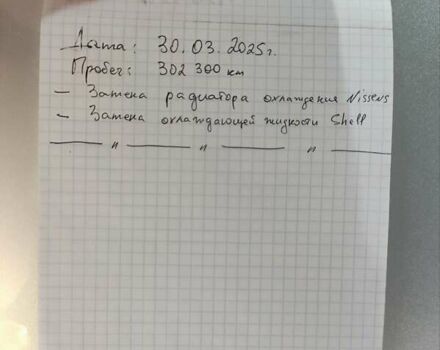 Дата: 30.03.2025г.
Пробег: 302 300 км
— Замена радиатора охлаждения Nissens
— Замена охлаждающей жидкости Shell
—— " —— " —— " ——